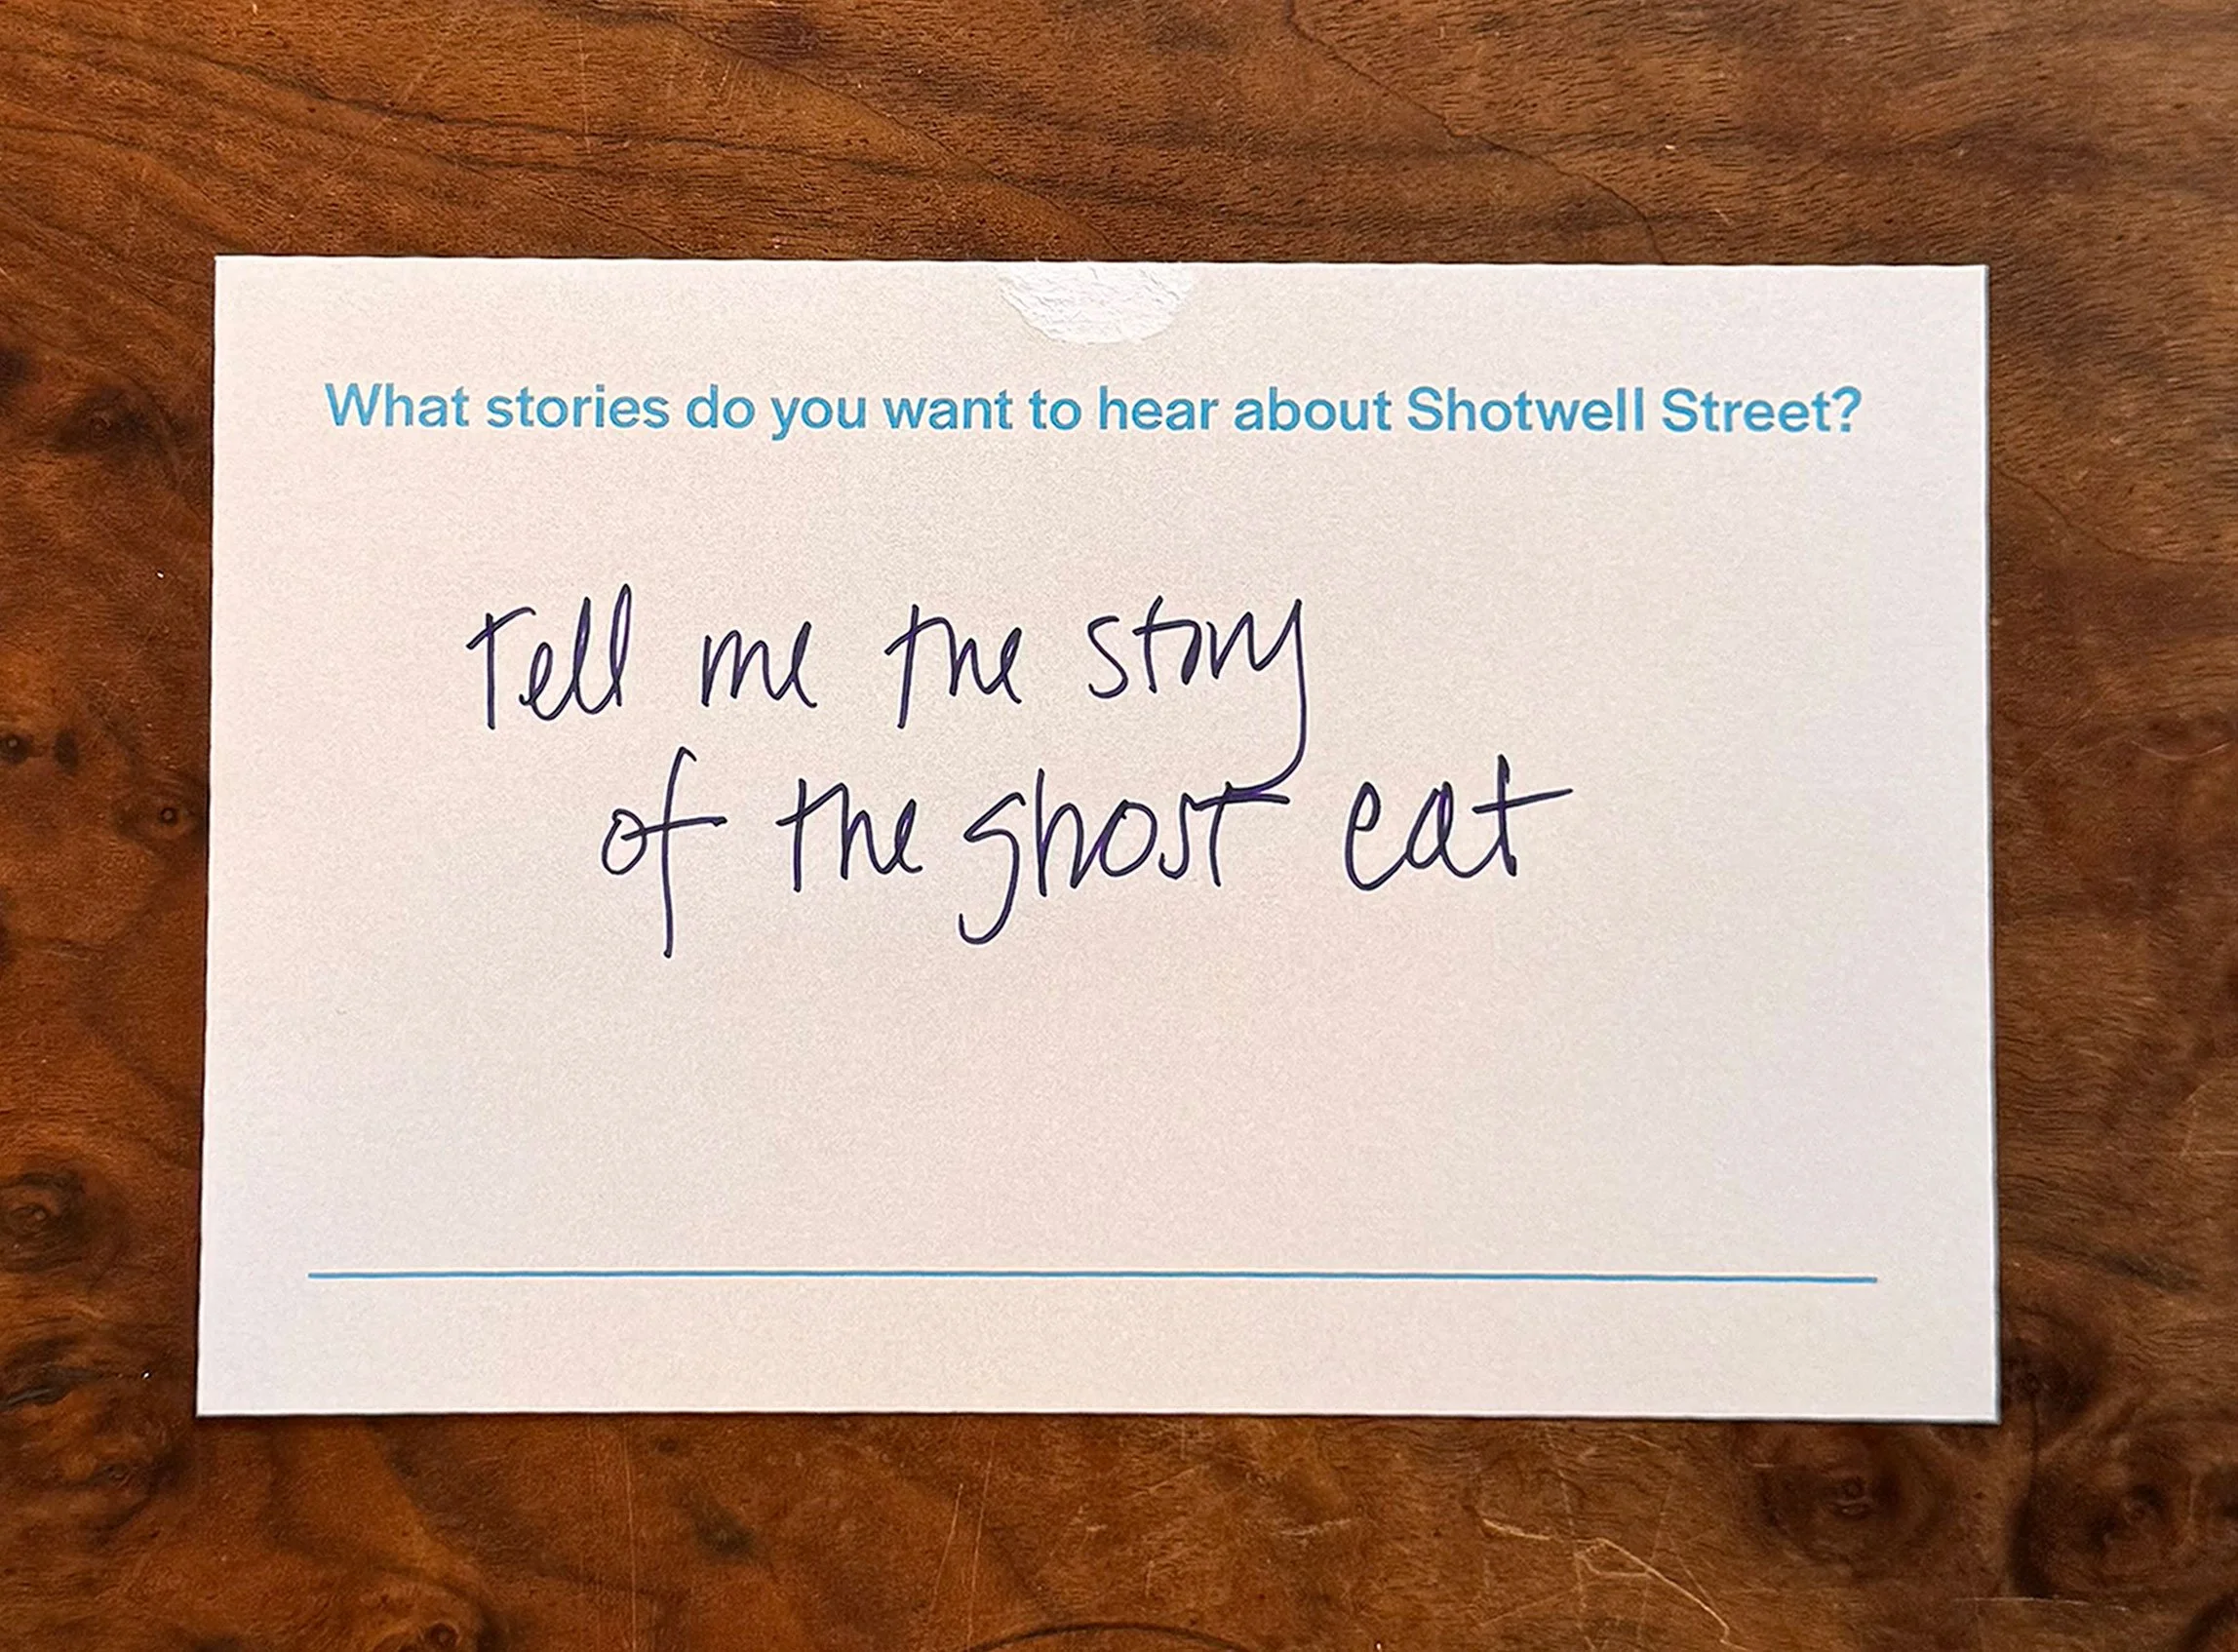 What stories do you want to hear about Shotwell Street?
Tell me the story
of the ghost eat